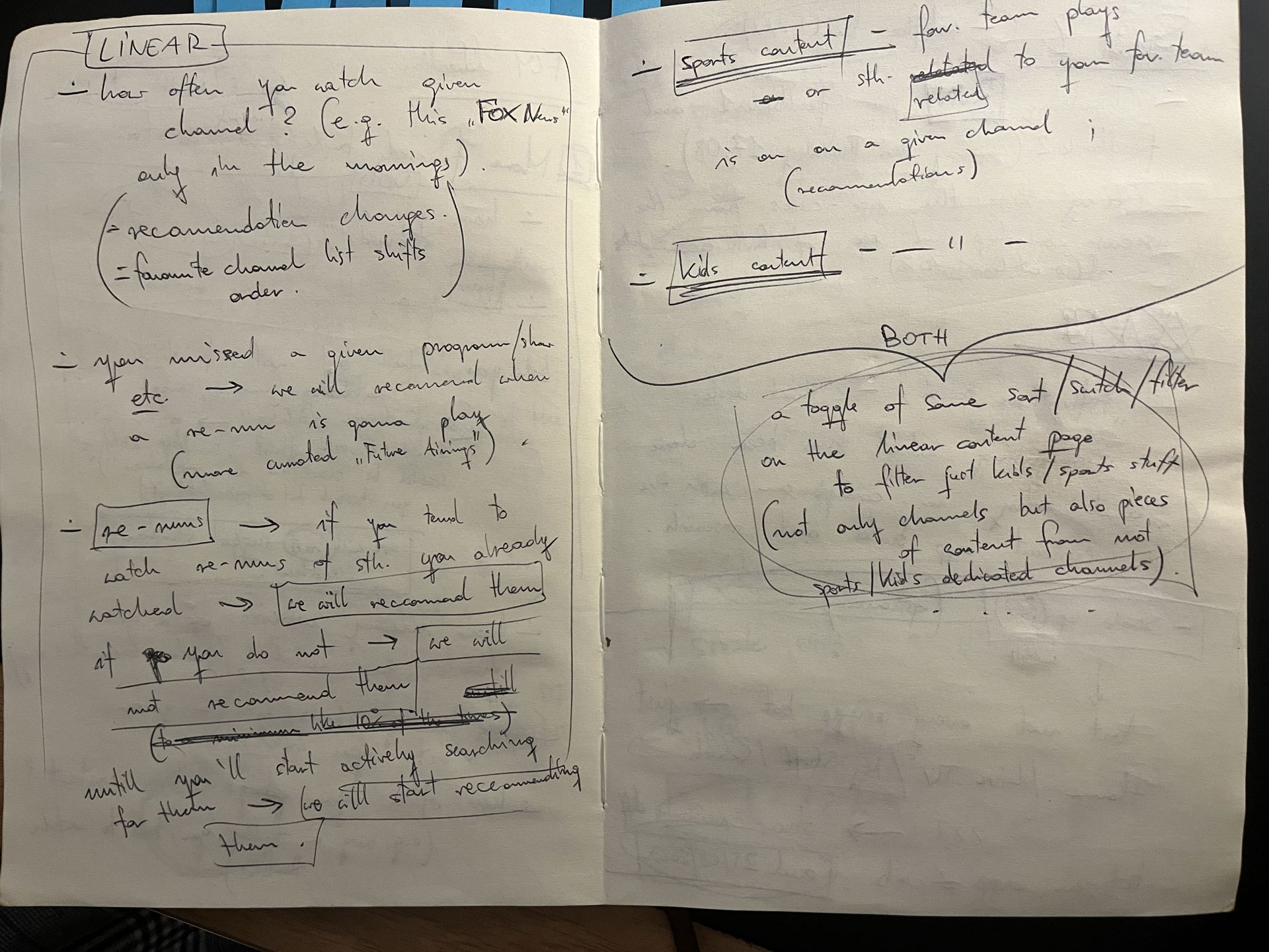 LINEAR
- how often you watch given
channel? (e.g. this „Fox News"
only in the mornings).
(- recomendation changes.
- favourite channel list shifts
order.)
- you missed a given program/show
etc. → we will recomend when
a re-run is gonna play
(more curated „Future Airings").
- re-runs → if you tend to
watch re-runs of sth. you already
watched → we will reccomend them
if you do not → we will
not recommend them till
(to minimum like 10% of the times)
untill you'll start actively searching
for them → we will start reccomending
them.
- sports content - fav. team plays
or sth. related to your fav. team
related
is on on a given channel ;
(recomendations)
- kids content - — " —
BOTH
a toggle of some sort/switch/filter
on the linear content page
to filter just kids/sports stuff
(not only channels but also pieces
of content from not
sports/kids dedicated channels).